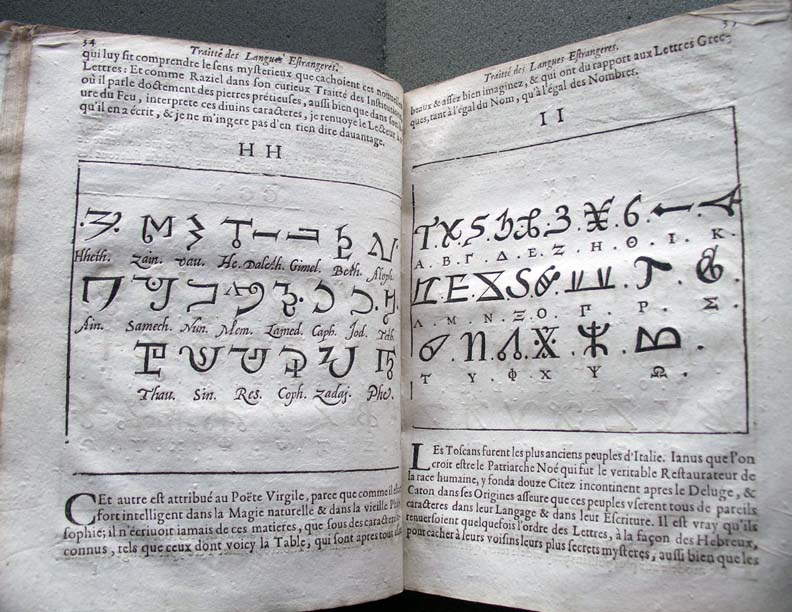 54
Traitté des Langues Estrangeres,
qui luy fit comprendre le sens mysterieux que cachoient ces
Lettres: Et comme Raziel dans son curieux Traitté des
où il parle doctement des pierres prétieuses, aussi bien que dans son
ure du Feu, interprete ces diuins caracteres, je renuoye le Lecteur à
qu'il en a écrit, & je ne m'ingere pas d'en rien dire dauantage.
H H
Hheth. Zain. vau. He. Daleth. Gimel. Beth. Aloph.
Ain. Samech. Nun. Mem. Lamed. Caph. Jod. Teth.
Thau. Sin. Res. Coph. Zadaj. Phe.
CEt autre est attribué au Poëte Virgile, parce que comme il
fort intelligent dans la Magie naturelle & dans la vieille
sophie; il n'écriuoit iamais de ces matieres, que sous des caracteres
connus, tels que ceux dont voicy la Table, qui sont apres tout
55
Traitté des Langues Estrangeres.
beaux & assez bien imaginez, & qui ont du rapport aux Lettres Grec-
ques, tant à l'égal du Nom, qu'à l'égal des Nombres.
I I
Α . Β . Γ . Δ . Ε . Ζ . Η . Θ . Ι . Κ .
Λ . Μ . Ν . Ξ . Ο . Π . Ρ . Σ .
Τ . Υ . Φ . Χ . Ψ . Ω .
LEs Toscans furent les plus anciens peuples d'Italie. Ianus que l'on
croit estre le Patriarche Noé qui fut le veritable Restaurateur de
la race humaine, y fonda douze Citez incontinent apres le Deluge, &
Caton dans ses Origines asseure que ces peuples vserent tous de pareils
caracteres dans leur Langage & dans leur Escriture. Il est vray qu'ils
renuersoient quelquefois l'ordre des Lettres, à la façon des Hebreux,
pour cacher à leurs voisins leurs plus secrets mysteres, aussi bien que les